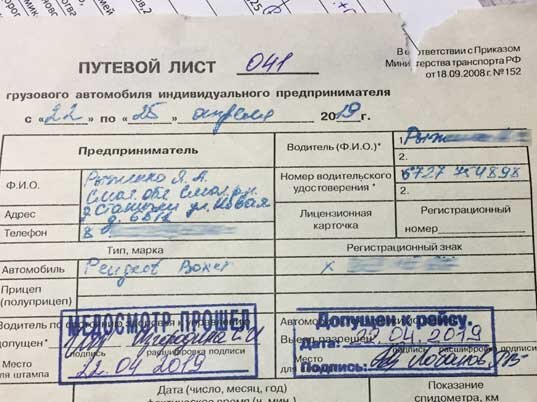 ПУТЕВОЙ ЛИСТ 041
В соответствии с Приказом
Министерства транспорта РФ
от 18.09.2008 г. №152
грузового автомобиля индивидуального предпринимателя
с «22» по «25» апреля 2019 г.
Предприниматель
Водитель (Ф.И.О.)*
1.
2.
Ф.И.О.
Номер водительского
удостоверения *
6727 754898
2.
Адрес
ул. Новая
Лицензионная
карточка
Регистрационный
номер
Телефон 8
Тип, марка
Регистрационный знак
Автомобиль Peugeot Boxer
Х
Прицеп
(полуприцеп)
МЕДОСМОТР ПРОШЕЛ
Допущен к рейсу.
Водитель по состоянию здоровья к управлению
допущен*
подпись расшифровка подписи
Выезд разрешен
Дата: 22.04.2019
подпись расшифровка подписи
Место
для штампа
22.04.2019
Место
Подпись:
Дата (число, месяц, год)
Показание
спидометра, км